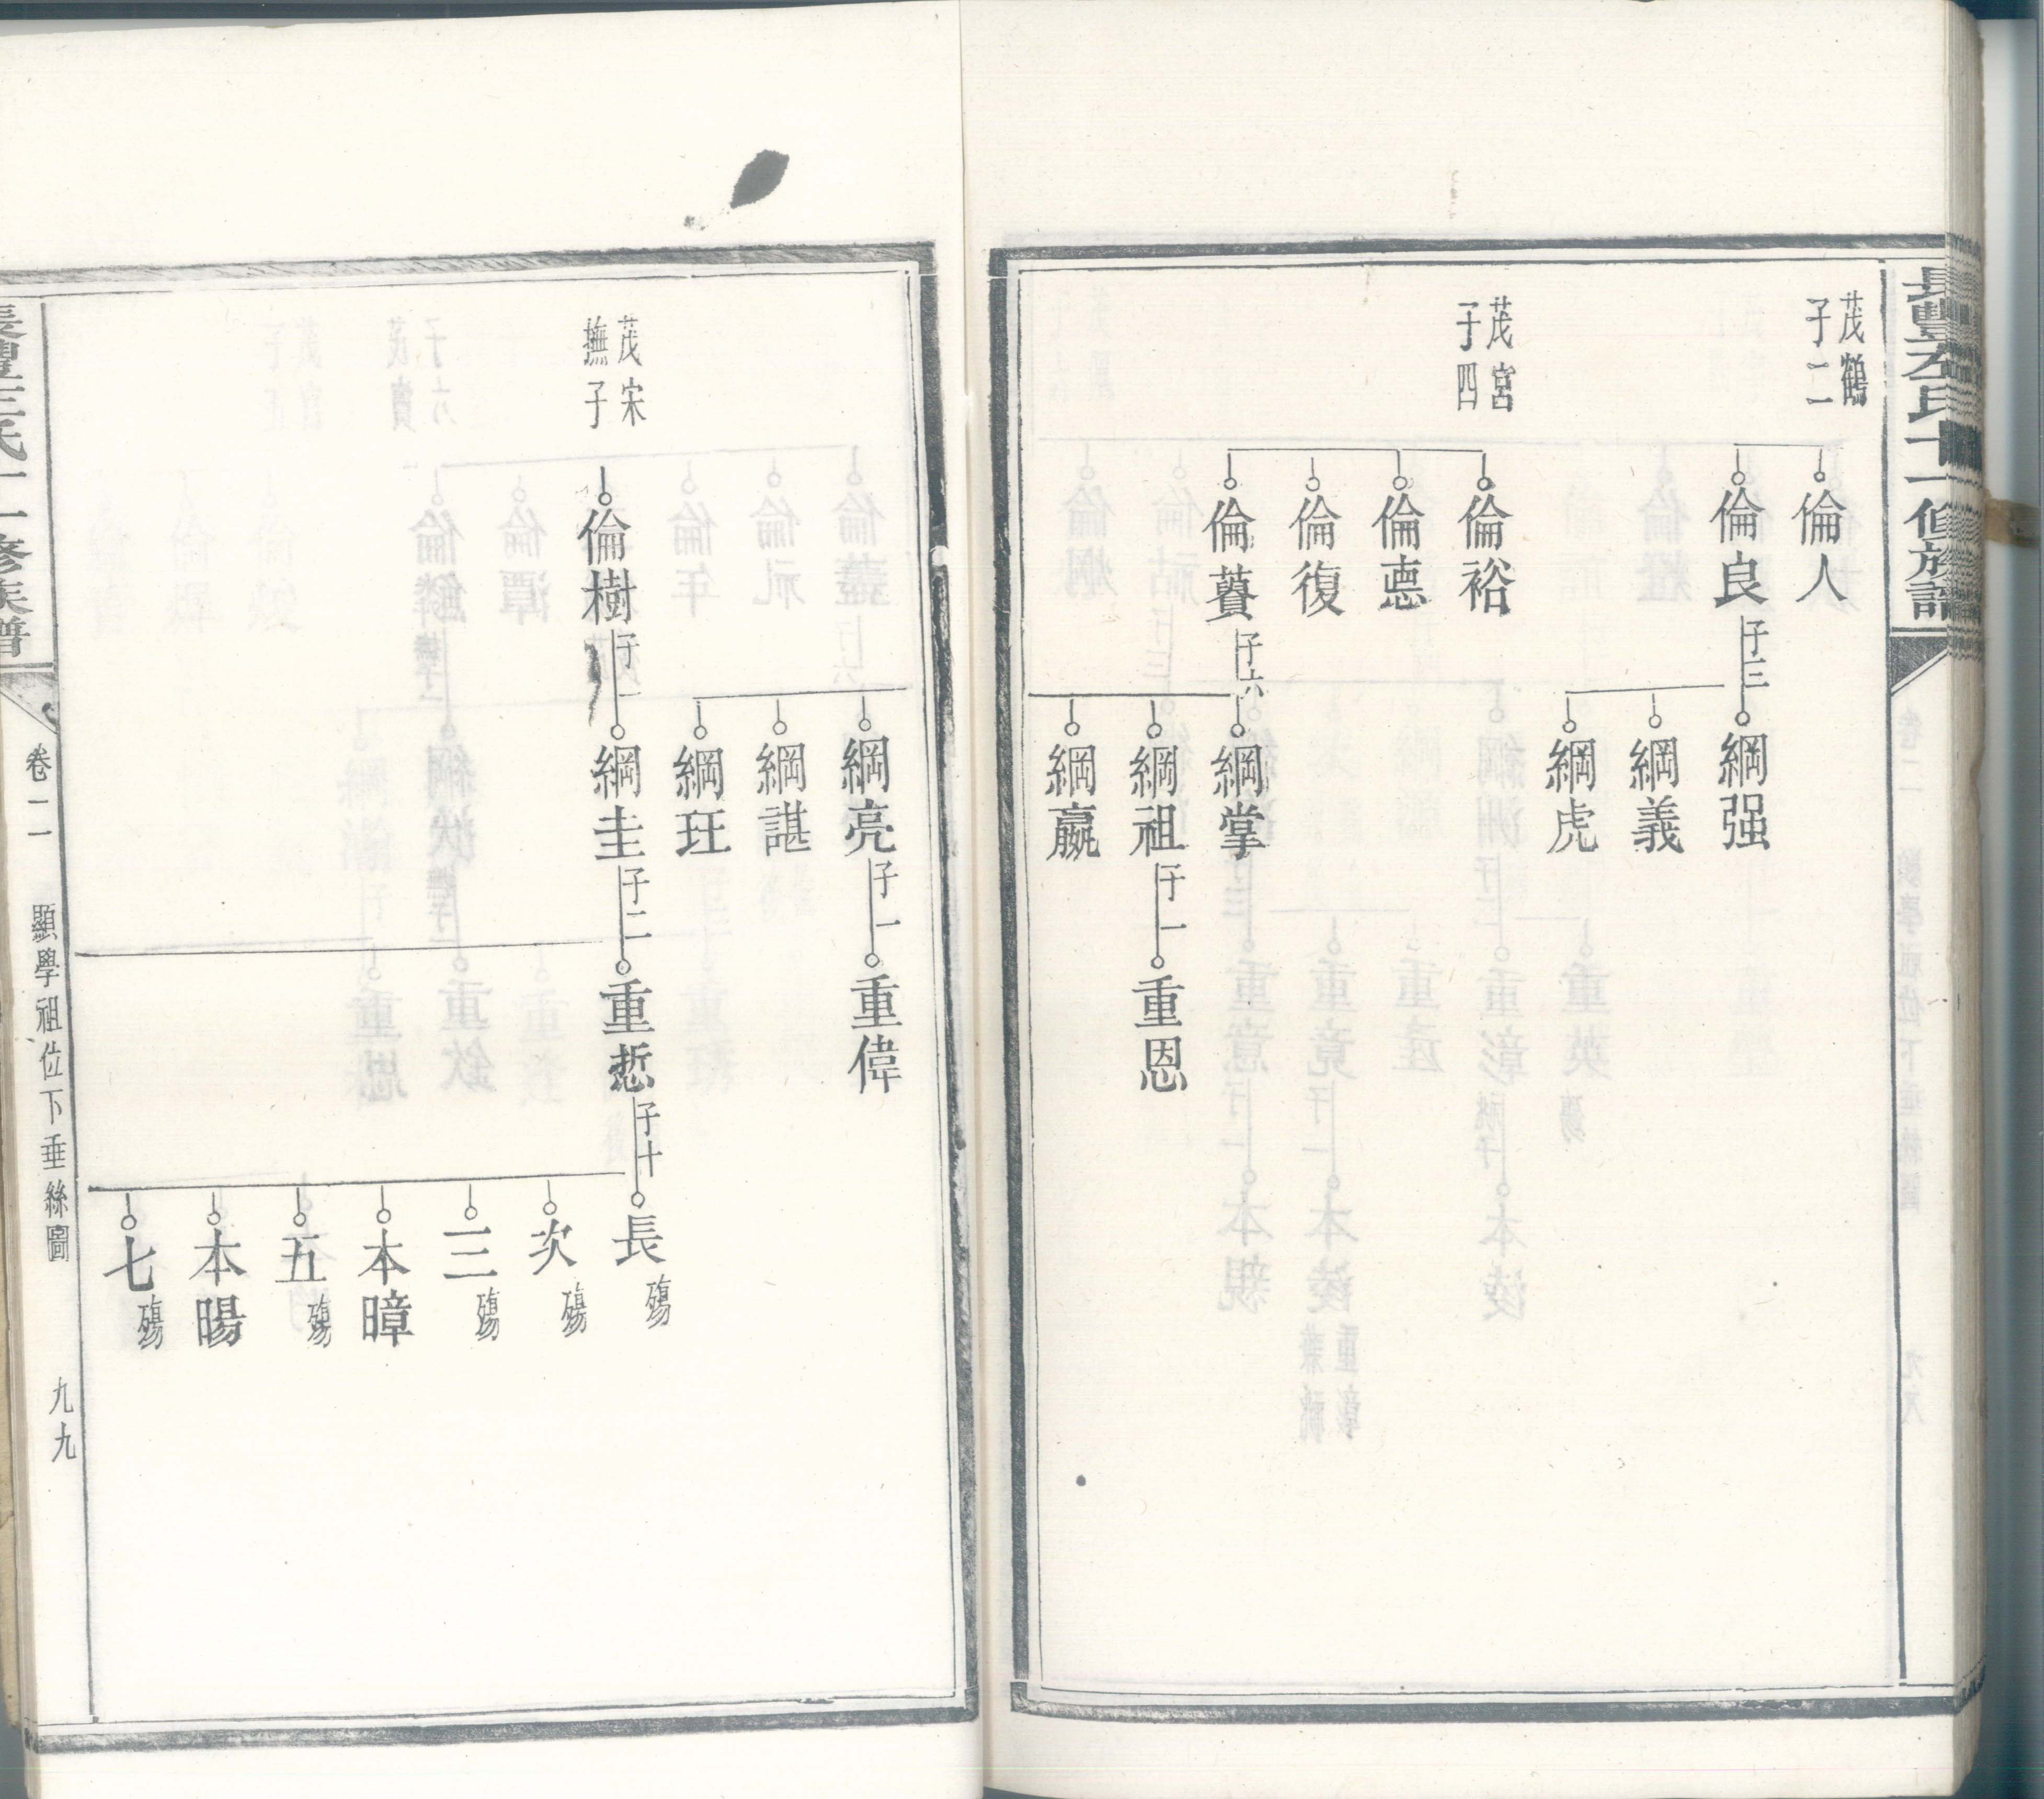 長豐左氏十一修族譜
茂鶴
子二
倫人
倫良
子三
綱强
綱義
綱虎
茂宮
子四
倫裕
倫惪
倫復
倫蕡
子六
綱掌
綱祖
子一
重恩
綱嬴
綱亮
子一
重偉
綱諶
綱玨
茂宋
撫子
倫樹
子一
綱圭
子二
重悊
子十
長殤
次殤
三殤
本暲
五殤
本暘
七殤
卷二
顯學祖位下垂絲圖
九九